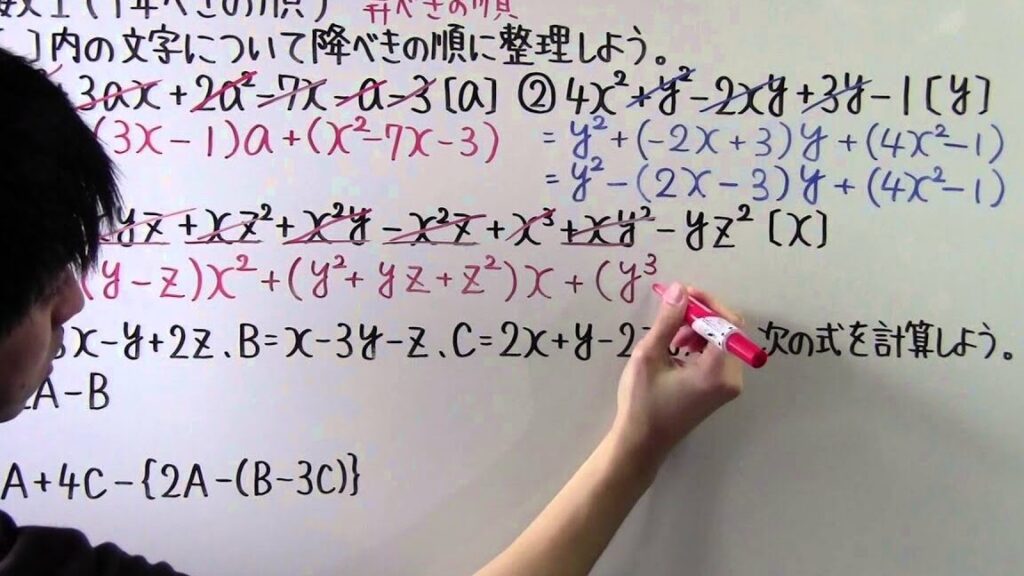 べきの順) 昇べきの順
[ ]内の文字について降べきの順に整理しよう。
3ax+2a²-7x-a-3[a] ②4x²+y²-2xy+3y-1[y]
(3x-1)a+(x²-7x-3) =y²+(-2x+3)y+(4x²-1)
=y²-(2x-3)y+(4x²-1)
yz+xz²+x²y-x²z+x³+xy²-yz²[x]
(y-z)x²+(y²+yz+z²)x+(y³
x-y+2z、B=x-3y-z、C=2x+y-2 次の式を計算しよう。
A-B
A+4C-{2A-(B-3C)}